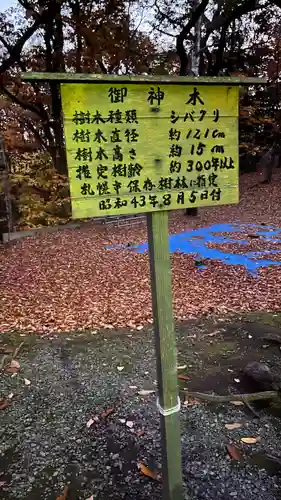 御神木
樹木種類 シバクリ
樹木直径 約121㎝
樹木高さ 約15m
推定樹齢 約300年以上
札幌市保存樹林に指定
昭和43年8月5日付